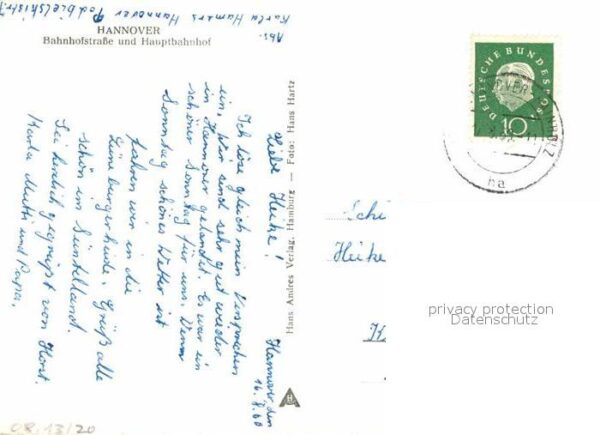 Abs. Karla Hamers Hannover Podbielskistr.
HANNOVER
Bahnhofstraße und Hauptbahnhof
Hannover, den
16.8.60
Liebe Heike!
Ich löse gleich mein Versprechen
ein. Wir sind sehr gut wieder
in Hannover gelandet. Es war ein
schöner Sonntag für uns. Wenn
Sonntag schönes Wetter ist
fahren wir in die
Lüneburgerheide. Grüß alle
schön im Süntelland.
Sei herzlich gegrüßt von Horst.
Karla Mutti und Papa.
Hans Andres Verlag, Hamburg — Foto: Hans Hartz
HA
DEUTSCHE BUNDESPOST
10
ha
Heike
privacy protection
Datenschutz
08,13/20